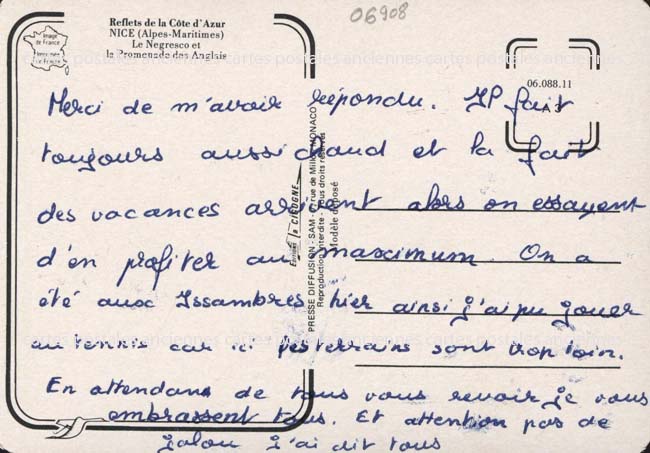 06908
Reflets de la Côte d'Azur
NICE (Alpes-Maritimes)
Le Negresco et
la Promenade des Anglais
Image
de France
06.088.11
A 3
cartes postales anciennes cartes postales anciennes cartes postales anciennes
Merci de m'avoir répondu. Il fait
toujours aussi chaud et la fait
des vacances arrivent alors on essayent
d'en profiter au maximum. On a
été aux Issambres hier ainsi j'ai pu jouer
au tennis car ici les terrains sont trop loin.
En attendant de tous vous revoir je vous
embrassent tous. Et attention pas de
jalou j'ai dit tous
Editions la CIGOGNE
PRESSE DIFFUSION - SAM - rue de Millo MONACO
Reproduction interdite - Tous droits réservés
Modèle déposé
cartes postales anciennes cartes postales anciennes cartes postales anciennes